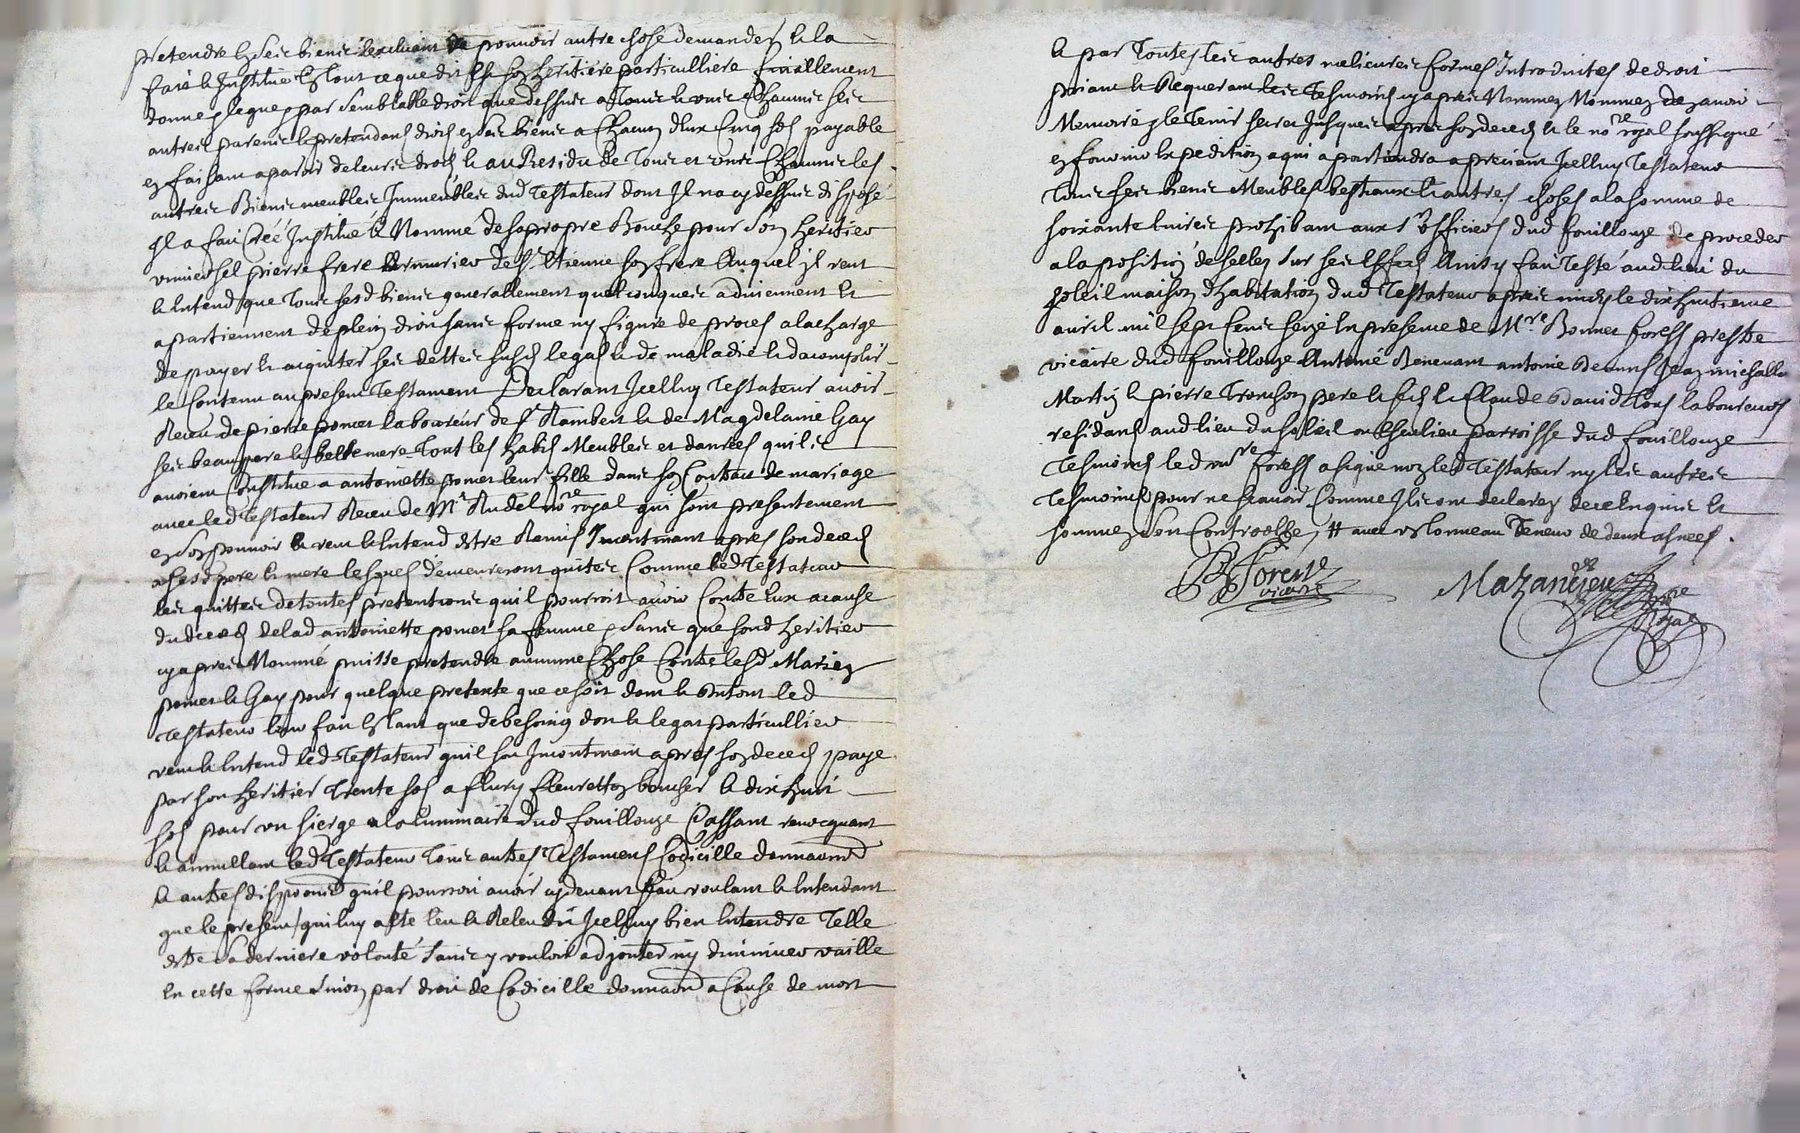 pretendre en ses biens l'excluant de pouvoir autre chose demander et la
faite et instituée en tout ce que dit est son heritiere particulliere finallement
donne legue par semblable droit que dessus a tous et uns chacuns ses
autres parens et pretendans droit en ses biens a chacun d'eux cinq sols payable
en faisant aparoir de leurs droits et au Residu de tous et uns chacuns les
autres Biens meubles Immeubles dud Testateur dont Il n'a cy dessus disposé
Il a fait Creé Institué et Nommé de sa propre Bouche pour son heritier
universel pierre frere armurier de St Etienne son frere Auquel il veut
et entend que tous sesd biens generallement quelconques adviennent et
apartiennent de plein droit sans forme ny figure de proces a la charge
de payer et aquiter ses dettes susd legats et de maladie et d'acomplir
le Contenu au present Testament Declarant Icelluy Testateur avoir
Receu de pierre pomet laboureur de St Rambert et de Magdelaine Gay
ses beau pere et belle mere tout les habits Meubles et danrées qu'ils
avoient Constitué a antoinette pomet leur fille dans son Contrat de mariage
avec led Testateur Receu de Mr Rudel nore royal qui sont presentement
en son pouvoir et veut et entend estre Remis Incontinant apres son deces
a sesd pere et mere lesquels demeureront quites Comme led Testateur
les quitte de toutes pretentions qu'il pourroit avoir Contre eux a cause
du deces de lad antoinette pomet sa femme, sans que sond heritier
cy apres Nommé puisse pretendre aucune Chose Contre lesd Mariez
pomet et Gay pour quelque pretexte que ce soit dont et du tout led
Testateur leur fait en tant que de besoing don et legat particullier
veut et entend led Testateur qu'il soit Incontinant apres son deces payé
par son heritier Trente sols a fleury fleuretton boucher et dix huit
sols pour un sierge a la luminaire dud fouillouze Cassant revocquant
et annullant led Testateur Tous autres Testamens Codicille donnaons
et autres dispoons qu'il pourroit avoir cy devant fait voulant et entendant
que le present qui luy a esté leu et Releu du Icelluy bien entendre Telle
estre sa derniere volonté sans y vouloir adjouter ny diminuer vaille
en cette forme sinon par droit de Codicille donnaon a Cause de mort
et par Toutes les autres melieures formes Introduites de droit
priant et Requerant les Tesmoins cy apres Nommez d'en avoir
Memoire le tenir secret Jusques apres son deces et le nore royal soussigné
en fournir expedition a qui apartiendra apreciant Icelluy Testateur
Tous ses biens Meubles bestiaux et autres choses a la somme de
soixante livres prohibant aux Srs officiers dud fouillouze de proceder
a la position de scellez sur ses effects Ainsy fait testé aud lieu du
soleil maison d'habitation dud Testateur apres midy le dix huitieme
avril mil sept cens seize en presence de Mre Bonnet forest prestre
vicaire dud fouillouze Antoine Benevant antoine
Martin et pierre Tronchon pere et fils et Claude David Tous laboureurs
residans aud lieu du soleil parroisse dud fouillouze
Tesmoins led mre forest a signé non led Testateur ny les autres
Tesmoins pour ne sçavoir Comme Ils ont declarez de ce enquis et
sommez Soit Controollé, # avec un tonneau Teneur de deux asnees.
B Forest
vicaire
Mazandieu
nore
Royal